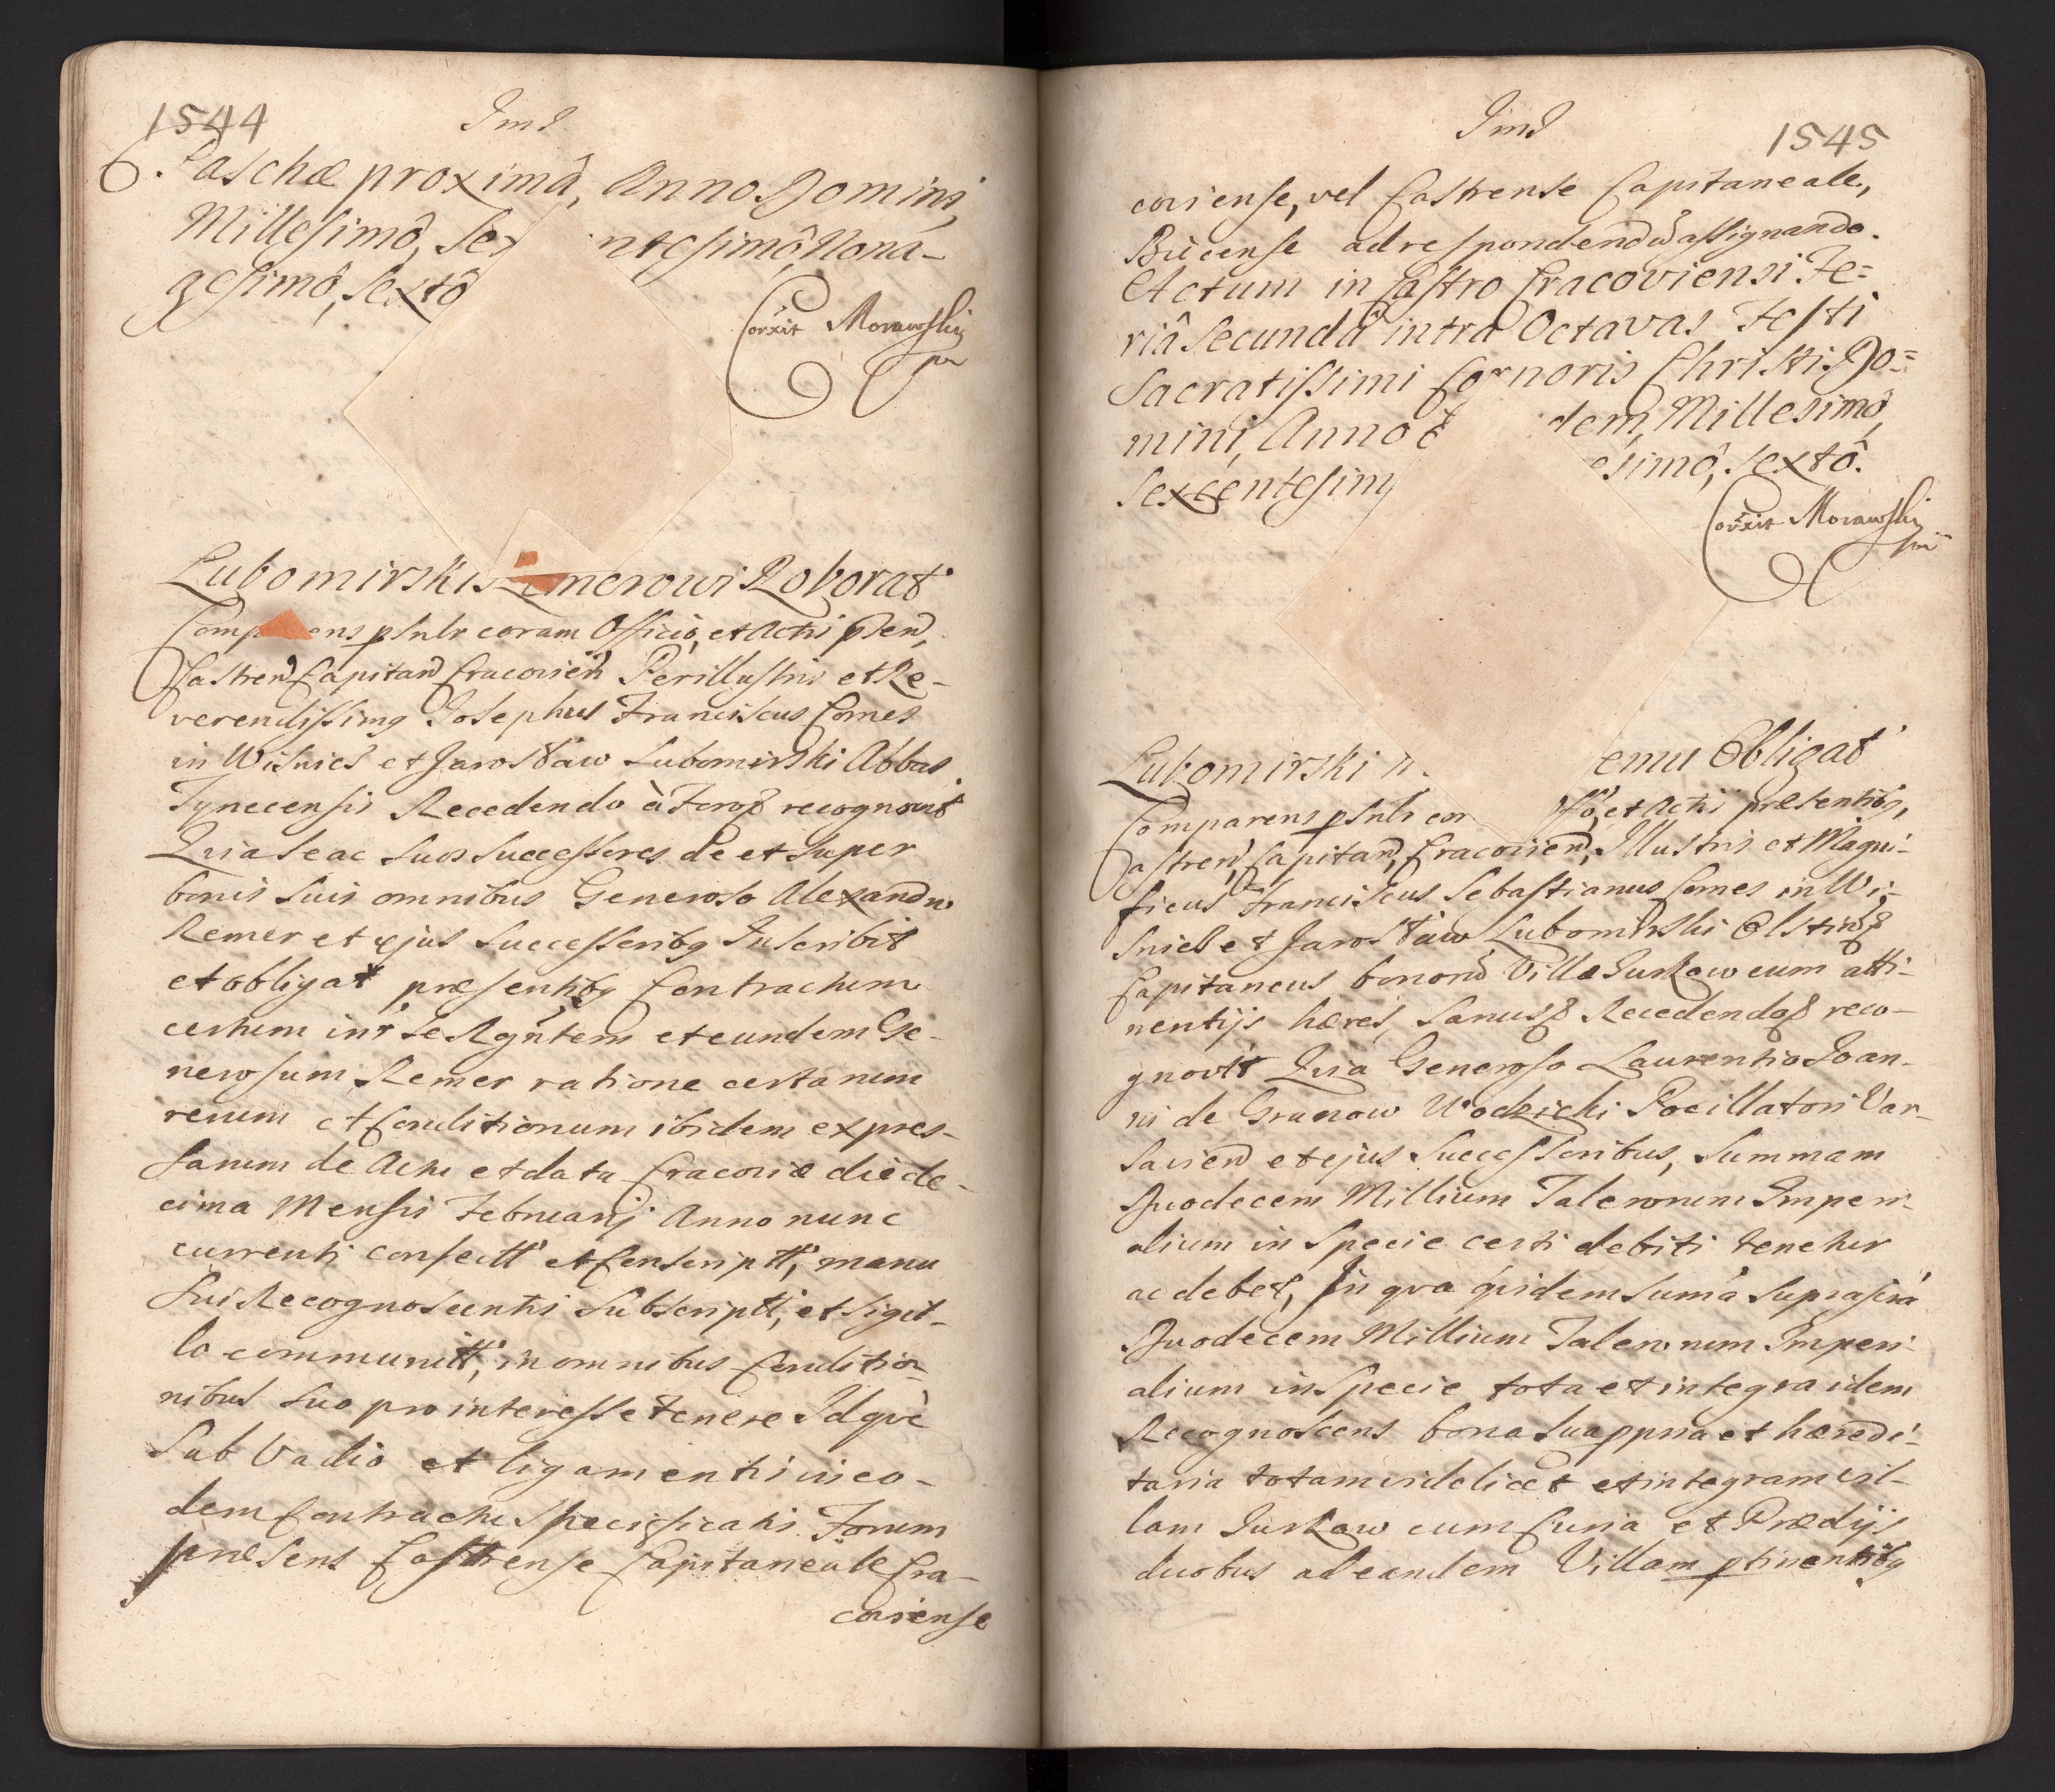 1544
Ind
Paschæ proximâ, Anno Domini,
Millesimô, Sex ntesimô Nona-
gesimô, Sextô
Corxit Morawski
mp
Lubomirski Remerowi Roborat
Comp ens psnlr coram Officio, et Actis psen,
Castren Capitan Cracovien Perillustris et Re-
verendissimq Josephus Franciscus Comes
in Wisnicz et Jarosław Lubomirski Abbas
Tynecensis Recedendo à Foroq recognovit
Quia Se ac Suos Successores de et Super
bonis Suis omnibus Generoso Alexandro
Remer et ejus Successoribq Inscribit
et obligat præsentibq Contractum
certum intr Se Rgntem et eundem Ge-
nerosum Remer ratione certarum
rerum et Conditionum ibidem expres-
sarum de Actu et datu Cracoviæ die de-
cima Mensis Februarij Anno nunc
currenti confectt et Conscriptt, manu
Sui Recognoscentis Subscriptt, et Sigil-
lo communitt, in omnibus Conditio-
nibus Suo pro interesse tenere Idqve
Sub Vadio et ligamentis in eo-
dem Contractu Specificatis Forum
præsens Castrense Capitaneale Cra-
coviense
Ind
1545
coviense, vel Castrense Capitaneale,
Biecense ad respondend assignando.
Actum in Castro Cracoviensi Fe=
riâ Secundâ intra Octavas Festi
Sacratissimi Corporis Christi Do=
mini, Anno e dem, Millesimô,
Sexcentesim esimô, Sextô.
Corxit Morawski
mp
Lubomirski emu Obligat
Comparens psnlr cor ffo, et Actis præsentibq,
Castren, Capitan, Cracovien, Illustris et Magni-
ficus Franciscus Sebastianus Comes in Wi-
snicz et Jarosław Lubomirski Olstinq
Capitaneus bonorum Villæ Jurkow cum atti-
nentijs hæres, Sanusq Recedendoq reco-
gnovit Quia Generoso Laurentio Joan-
ni de Granow Wodzicki Pocillatori Var-
savien et ejus Successoribus, Summam
Duodecem Millium Talerorum Imperi-
alium in Specie certi debiti tenetur
ac debet, In qva qvidem Suma Suprascra
Duodecem Millium Talerorum Imperi-
alium in Specie tota et integra idem
Recognoscens bona Sua ppria et hæredi-
taria totam videlicet et integram vil-
lam Jurkow cum Curia et Prædijs
duobus ad eandem Villam ptinentibq